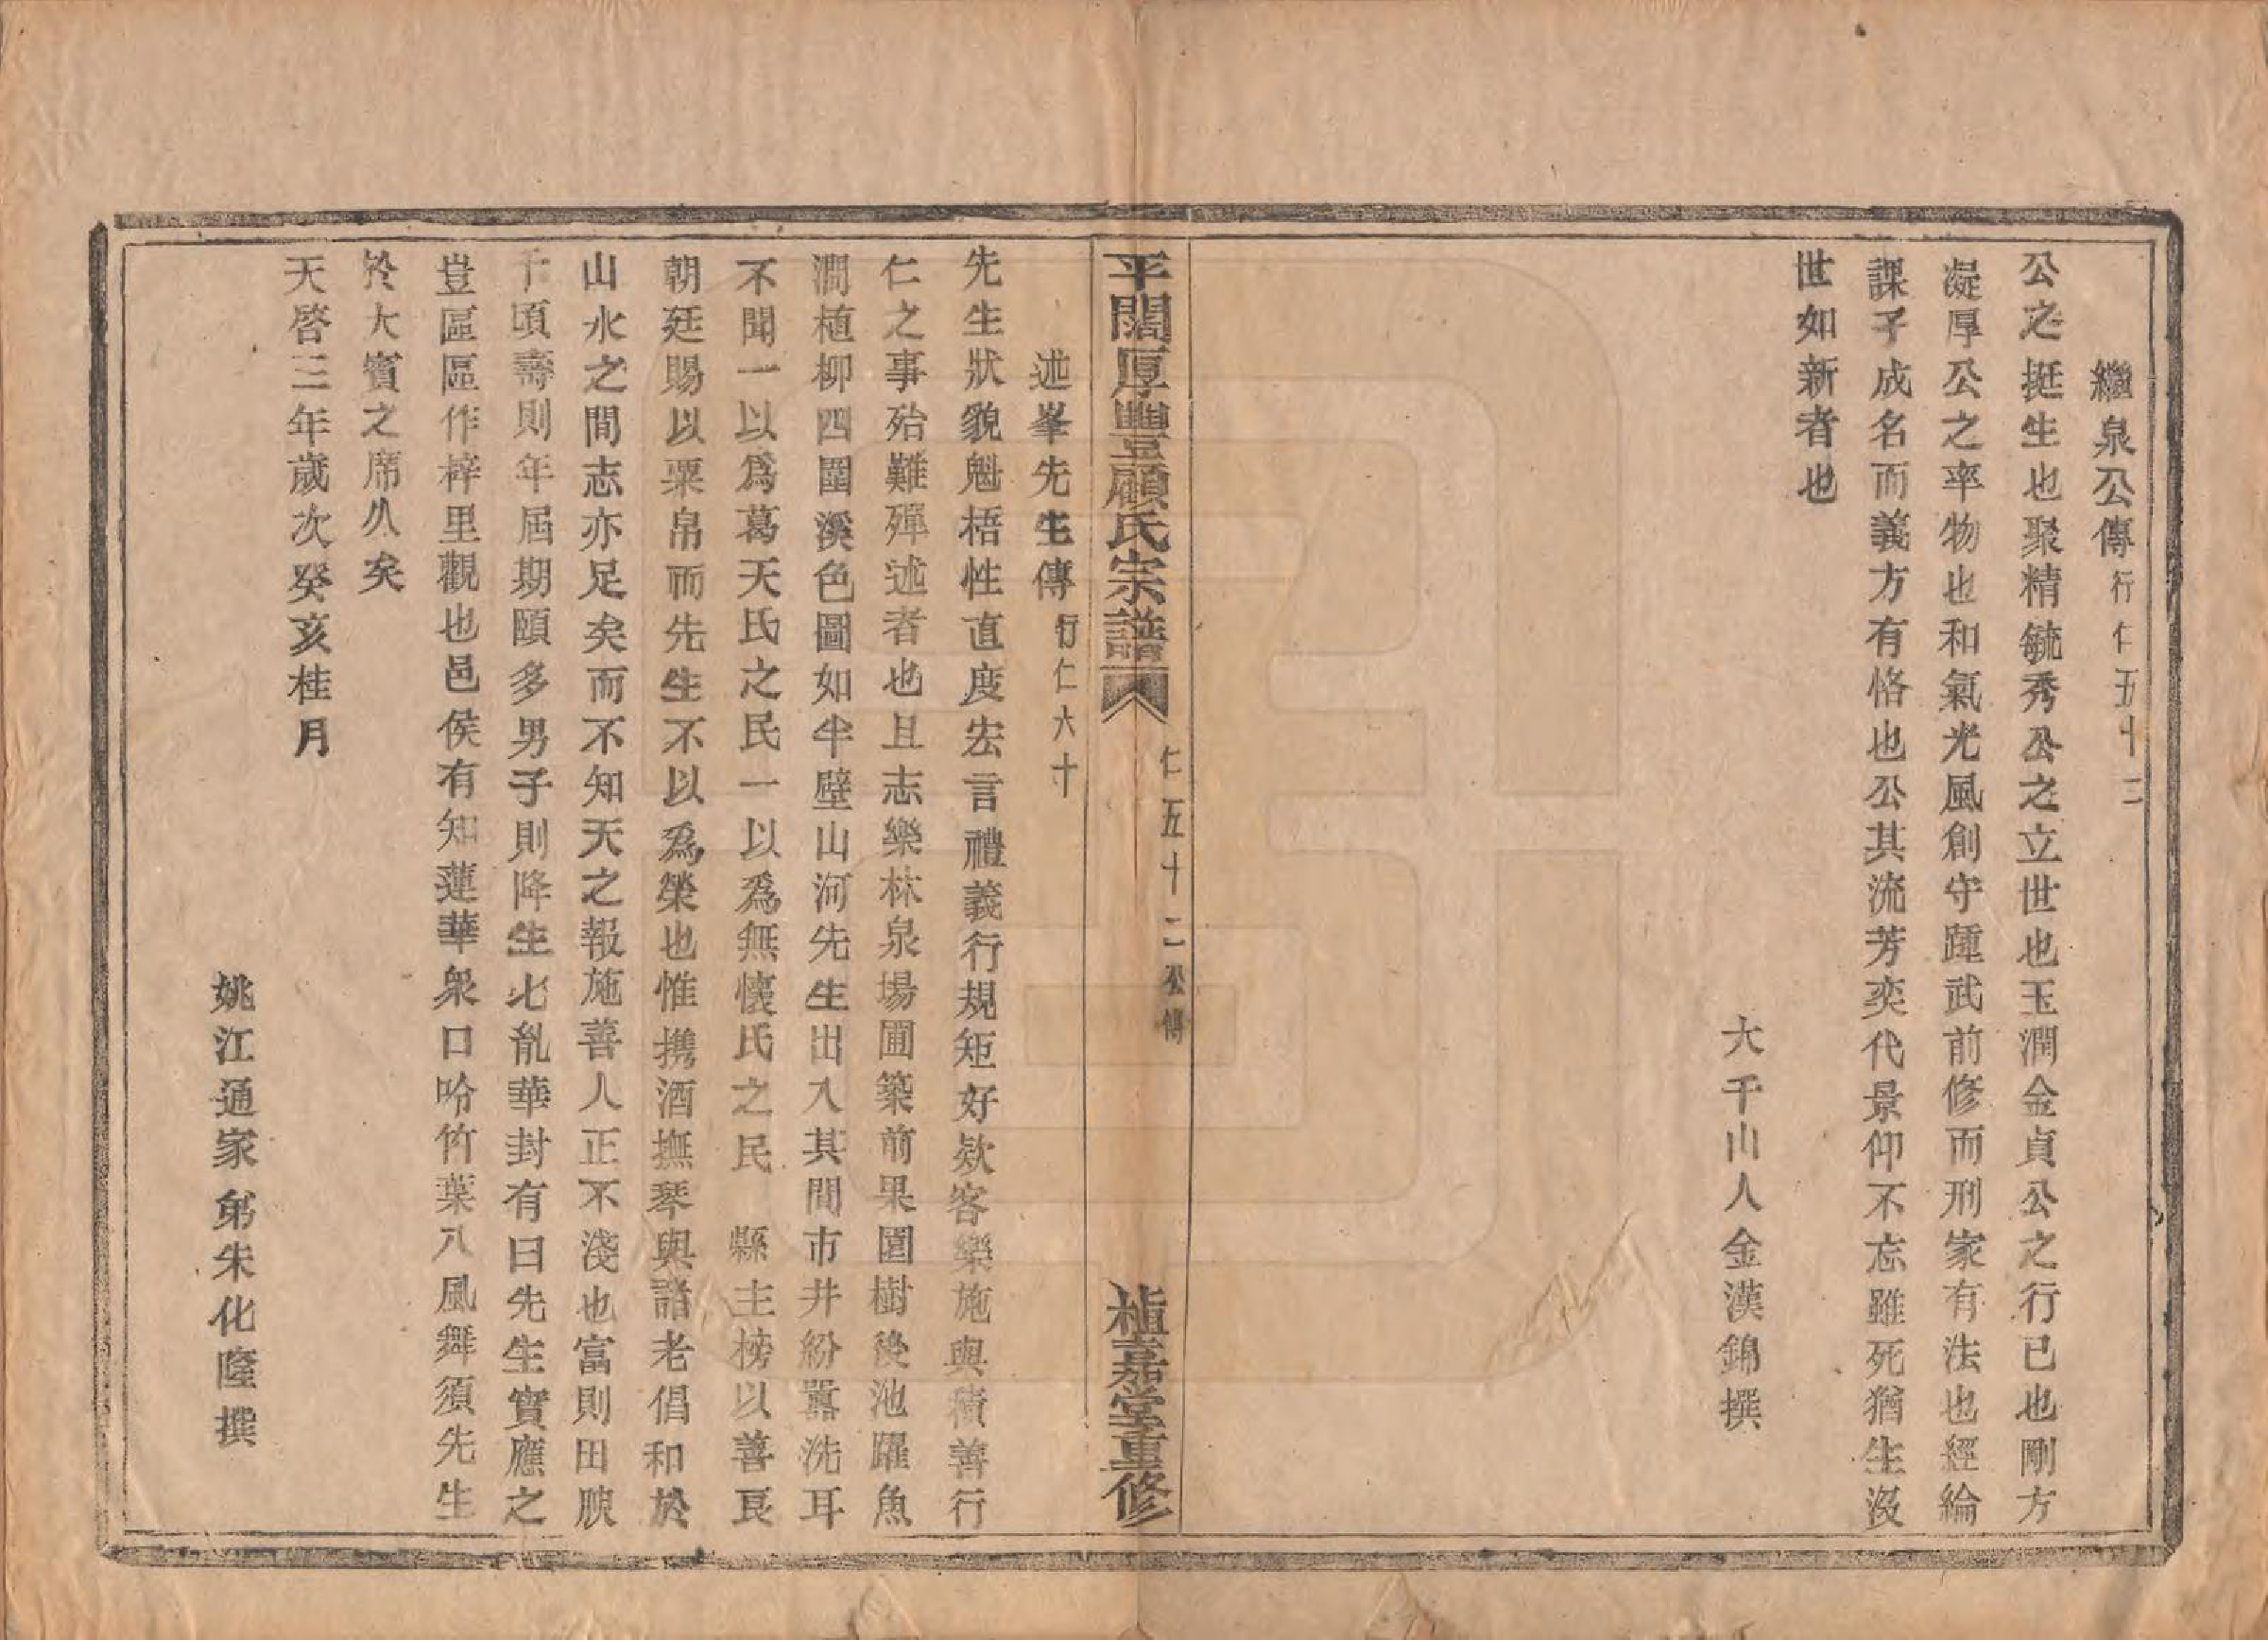 繼泉公傳行仁五十二
公之挺生也聚精毓秀公之立世也玉潤金貞公之行已也剛方
凝厚公之率物也和氣光風創守踵武前修而刑家有法也經綸
課子成名而義方有恪也公其流芳奕代景仰不忘雖死猶生沒
世如新者也
大千山人金漢錦撰
平闊厚豐顧氏宗譜 仁五十二公傳 植嘉堂重修
述峯先生傳行仁六十
先生狀貌魁梧性直度宏言禮義行規矩好欵客樂施與積善行
仁之事殆難殫述者也且志樂林泉場圃築前果園樹後池躍魚
澗植柳四圍溪色圖如半壁山河先生出入其間市井紛囂洗耳
不聞一以爲葛天氏之民一以爲無懷氏之民 縣主榜以善良
朝廷賜以粟帛而先生不以爲榮也惟携酒撫琴與諸老倡和於
山水之間志亦足矣而不知天之報施善人正不淺也富則田腴
千頃壽則年屆期頤多男子則降生七胤華封有曰先生實應之
豈區區作梓里觀也邑侯有知蓮華衆口吟竹葉八風舞須先生
於大賓之席久矣
天啓三年歲次癸亥桂月
姚江通家弟朱化隆撰